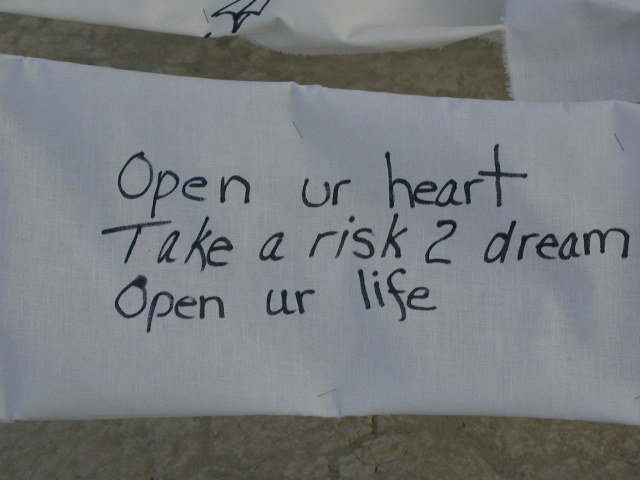 Open ur heart
Take a risk 2 dream
Open ur life